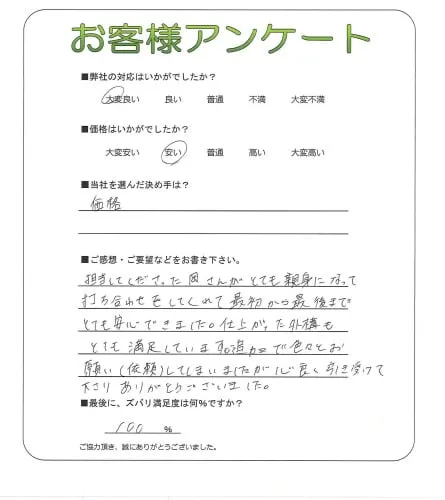 お客様アンケート
■弊社の対応はいかがでしたか?
大変良い 良い 普通 不満 大変不満
■価格はいかがでしたか?
大変安い 安い 普通 高い 大変高い
■当社を選んだ決め手は?
価格
■ご感想・ご要望などをお書き下さい。
担当してくださった 岡さんがとても親身になって
打ち合わせをしてくれて最初から最後まで
とても安心できました。仕上がった外構も
とても満足しています。追加で色々とお
願い(依頼)してしまいましたが心良く引き受けて
下さり ありがとうございました。
■最後に、ズバリ満足度は何%ですか?
100 %
ご協力頂き、誠にありがとうございました。